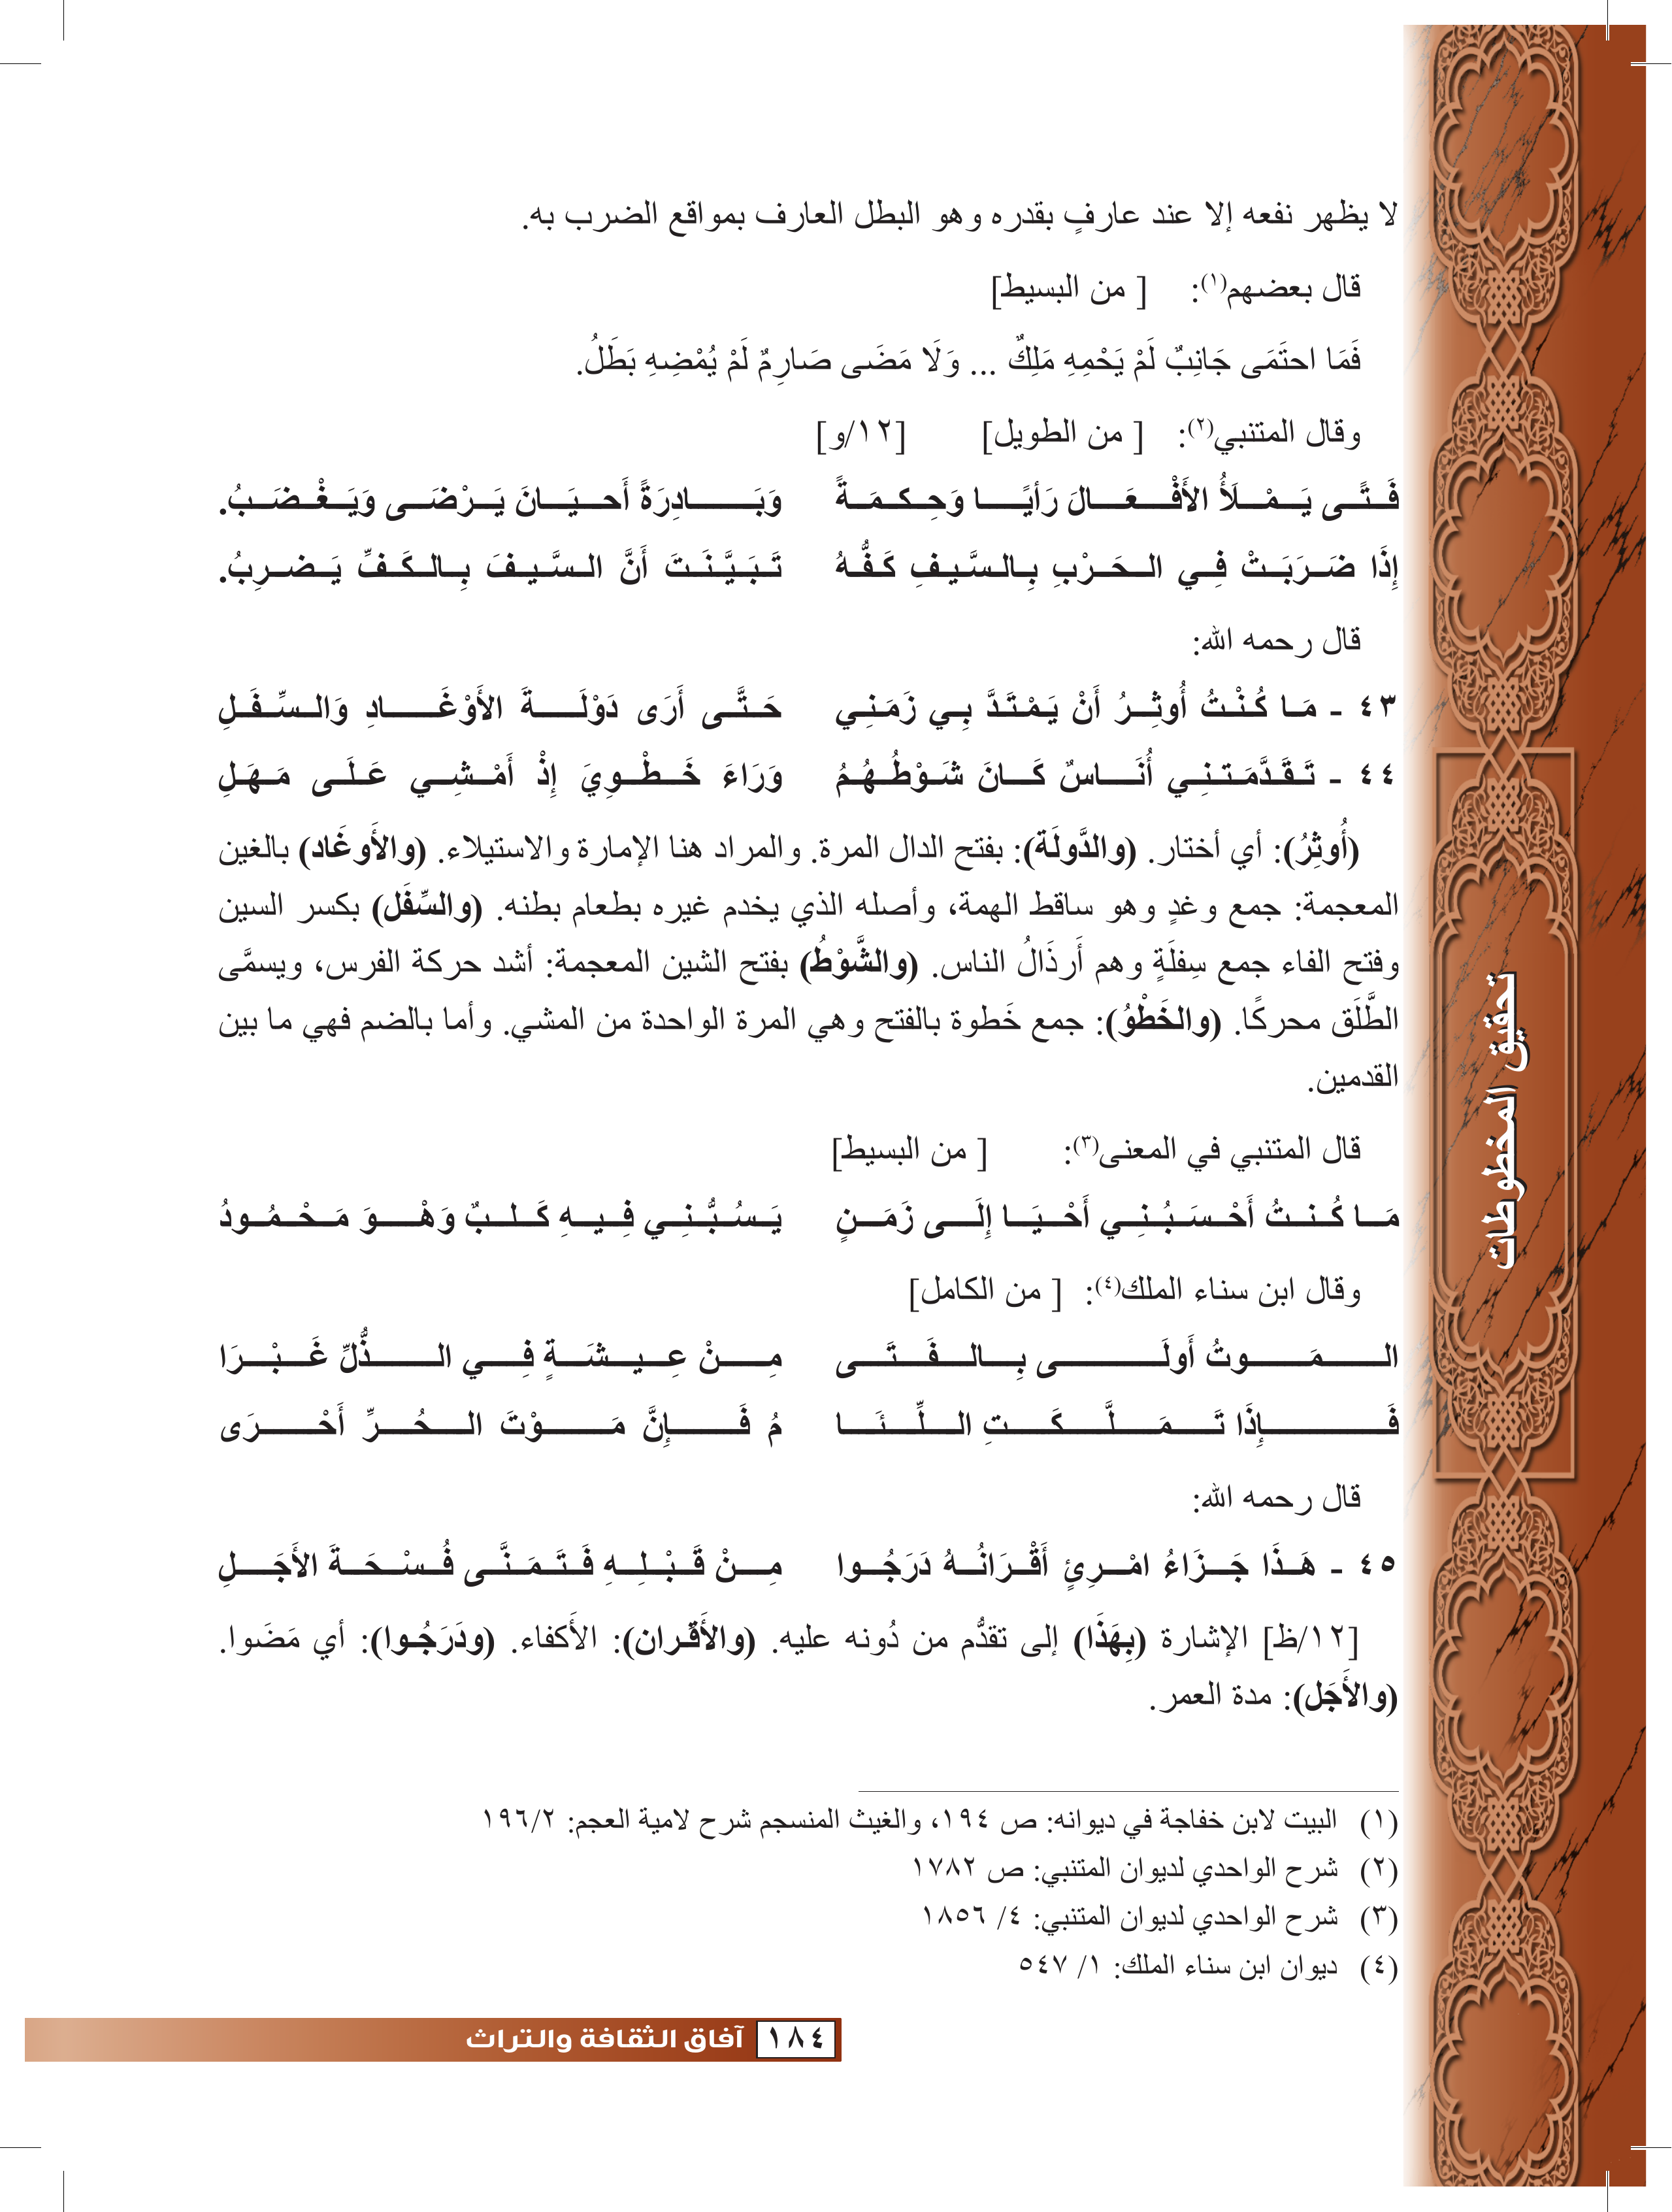 لا يظهر نفعه إلا عند عارفٍ بقدره وهو البطل العارف بمواقع الضرب به.
قال بعضهم(١): [ من البسيط]
فَمَا احتَمَى جَانِبٌ لَمْ يَحْمِهِ مَلِكٌ ... وَلَا مَضَى صَارِمٌ لَمْ يُمْضِهِ بَطَلُ.
وقال المتنبي(٢): [ من الطويل] [١٢/و]
فَتًى يَمْلَأُ الأَفْعَالَ رَأيًا وَحِكمَةً وَبَادِرَةً أَحيَانَ يَرْضَى وَيَغْضَبُ.
إِذَا ضَرَبَتْ فِي الحَرْبِ بِالسَّيفِ كَفُّهُ تَبَيَّنَتَ أَنَّ السَّيفَ بِالكَفِّ يَضرِبُ.
قال رحمه الله:
٤٣ - مَا كُنْتُ أُوثِرُ أَنْ يَمْتَدَّ بِي زَمَنِي حَتَّى أَرَى دَوْلَةَ الأَوْغَادِ وَالسِّفَلِ
٤٤ - تَقَدَّمَتنِي أُنَاسٌ كَانَ شَوْطُهُمُ وَرَاءَ خَطْوِيَ إِذْ أَمْشِي عَلَى مَهَلِ
(أُوثِرُ): أي أختار. (والدَّولَة): بفتح الدال المرة. والمراد هنا الإمارة والاستيلاء. (والأَوغَاد) بالغين
المعجمة: جمع وغدٍ وهو ساقط الهمة، وأصله الذي يخدم غيره بطعام بطنه. (والسِّفَل) بكسر السين
وفتح الفاء جمع سِفلَةٍ وهم أَرذَالُ الناس. (والشَّوْطُ) بفتح الشين المعجمة: أشد حركة الفرس، ويسمَّى
الطَّلَق محركًا. (والخَطْوُ): جمع خَطوة بالفتح وهي المرة الواحدة من المشي. وأما بالضم فهي ما بين
القدمين.
قال المتنبي في المعنى(٣): [ من البسيط]
مَا كُنتُ أَحْسَبُنِي أَحْيَا إِلَى زَمَنٍ يَسُبُّنِي فِيهِ كَلبٌ وَهْوَ مَحْمُودُ
وقال ابن سناء الملك(٤): [ من الكامل]
المَوتُ أَولَى بِالفَتَى مِنْ عِيشَةٍ فِي الذُّلِّ غَبْرَا
فَإِذَا تَمَلَّكَتِ اللِّئَا مُ فَإِنَّ مَوْتَ الحُرِّ أَحْرَى
قال رحمه الله:
٤٥ - هَذَا جَزَاءُ امْرِئٍ أَقْرَانُهُ دَرَجُوا مِنْ قَبْلِهِ فَتَمَنَّى فُسْحَةَ الأَجَلِ
[١٢/ظ] الإشارة (بِهَذَا) إلى تقدُّم من دُونه عليه. (والأَقْران): الأَكفاء. (ودَرَجُوا): أي مَضَوا.
(والأَجَل): مدة العمر.
(١) البيت لابن خفاجة في ديوانه: ص ١٩٤، والغيث المنسجم شرح لامية العجم: ١٩٦/٢
(٢) شرح الواحدي لديوان المتنبي: ص ١٧٨٢
(٣) شرح الواحدي لديوان المتنبي: ٤/ ١٨٥٦
(٤) ديوان ابن سناء الملك: ١/ ٥٤٧
١٨٤ آفاق الثقافة والتراث
تحقيق المخطوطات